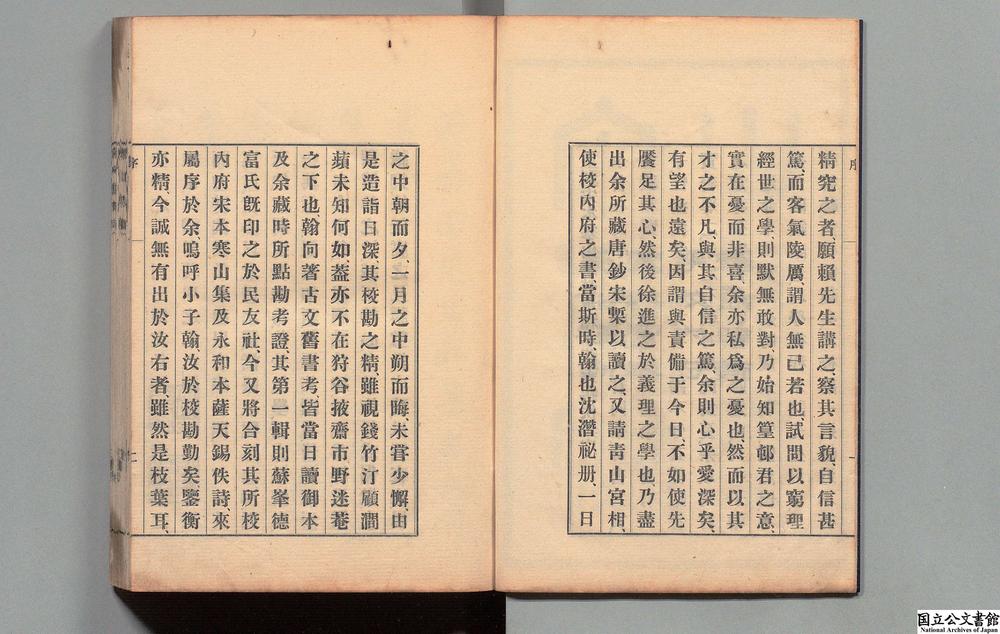 序
精究之者願賴先生講之、察其言貌、自信甚
篤、而客氣陵厲、謂人無己若也、試問以窮理
經世之學則默無敢對、乃始知篁邨君之意、
實在憂而非喜、余亦私爲之憂也、然而以其
才之不凡、與其自信之篤、余則心乎愛深矣、
有望也遠矣、因謂與責備于今日、不如使先
饜足其心、然後徐進之於義理之學也、乃盡
出余所藏唐鈔宋槧以讀之、又請靑山宮相、
使校內府之書、當斯時、翰也沈潛祕册、一日
之中朝而夕、一月之中朔而晦未嘗少懈、由
是造詣日深其校勘之精雖視錢竹汀顧澗
蘋未知何如葢亦不在狩谷掖齋市野迷菴
之下也、翰向著古文舊書考、皆當日讀御本
及余藏時所點勘考證、其第一輯則蘇峯德
富氏旣印之於民友社、今又將合刻其所校
內府宋本寒山集及永和本薩天錫佚詩、來
屬序於余、嗚呼小子翰、汝於校勘勤矣、鑒衡
亦精、今誠無有出於汝右者、雖然是枝葉耳、
序
二
国立公文書館
National Archives of Japan